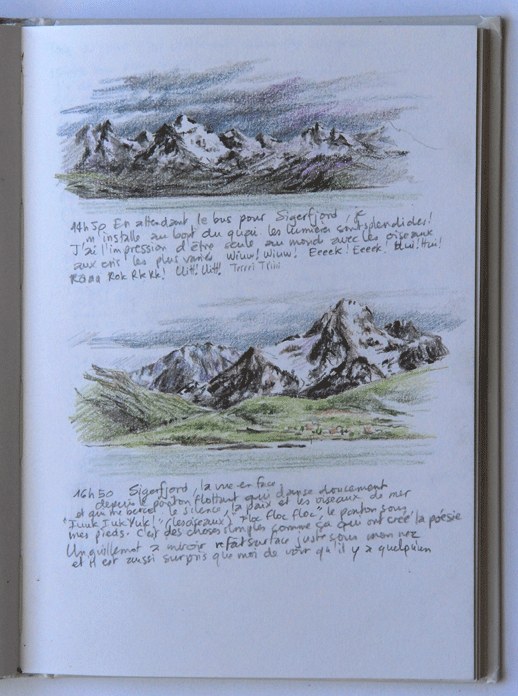 14h50 En attendant le bus pour Sigerfjord, je
m'installe au bord du quai les lumières sont splendides!
J'ai l'impression d'être seule au monde avec les oiseaux
aux cris les plus variés Wiuw! Wiuw! Eeeek! Eeeek! Hui! Hui!
Raaa Rok Rk Rk! Uit! Uit! Trrrri Triii
16h50 Sigerfjord, la vue en face
depuis le ponton flottant qui danse doucement
et qui me berce! le silence, la paix et les oiseaux de mer
"Iuuk Iuk Yuk!" (les oiseaux) "Floc floc floc" le ponton sous
mes pieds. C'est des choses simples comme ça qui ont créé la poésie
Un guillemot à miroir refait surface juste sous mon nez
et il est aussi surpris que moi de voir qu'il y a quelqu'un